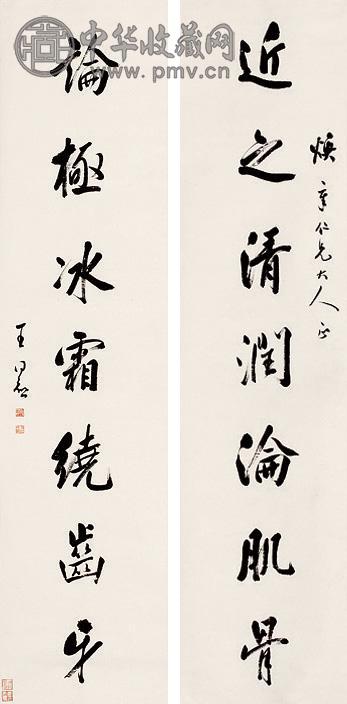 中华收藏网
www.pmv.cn
煥章仁兄大人正
近之清潤淪肌骨
論極冰霜繞齒牙
王同愈